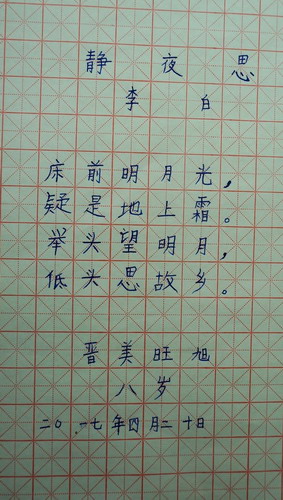 静夜思
李白
床前明月光，
疑是地上霜。
举头望明月，
低头思故乡。
晋美旺旭
八岁
二〇一七年四月二十日